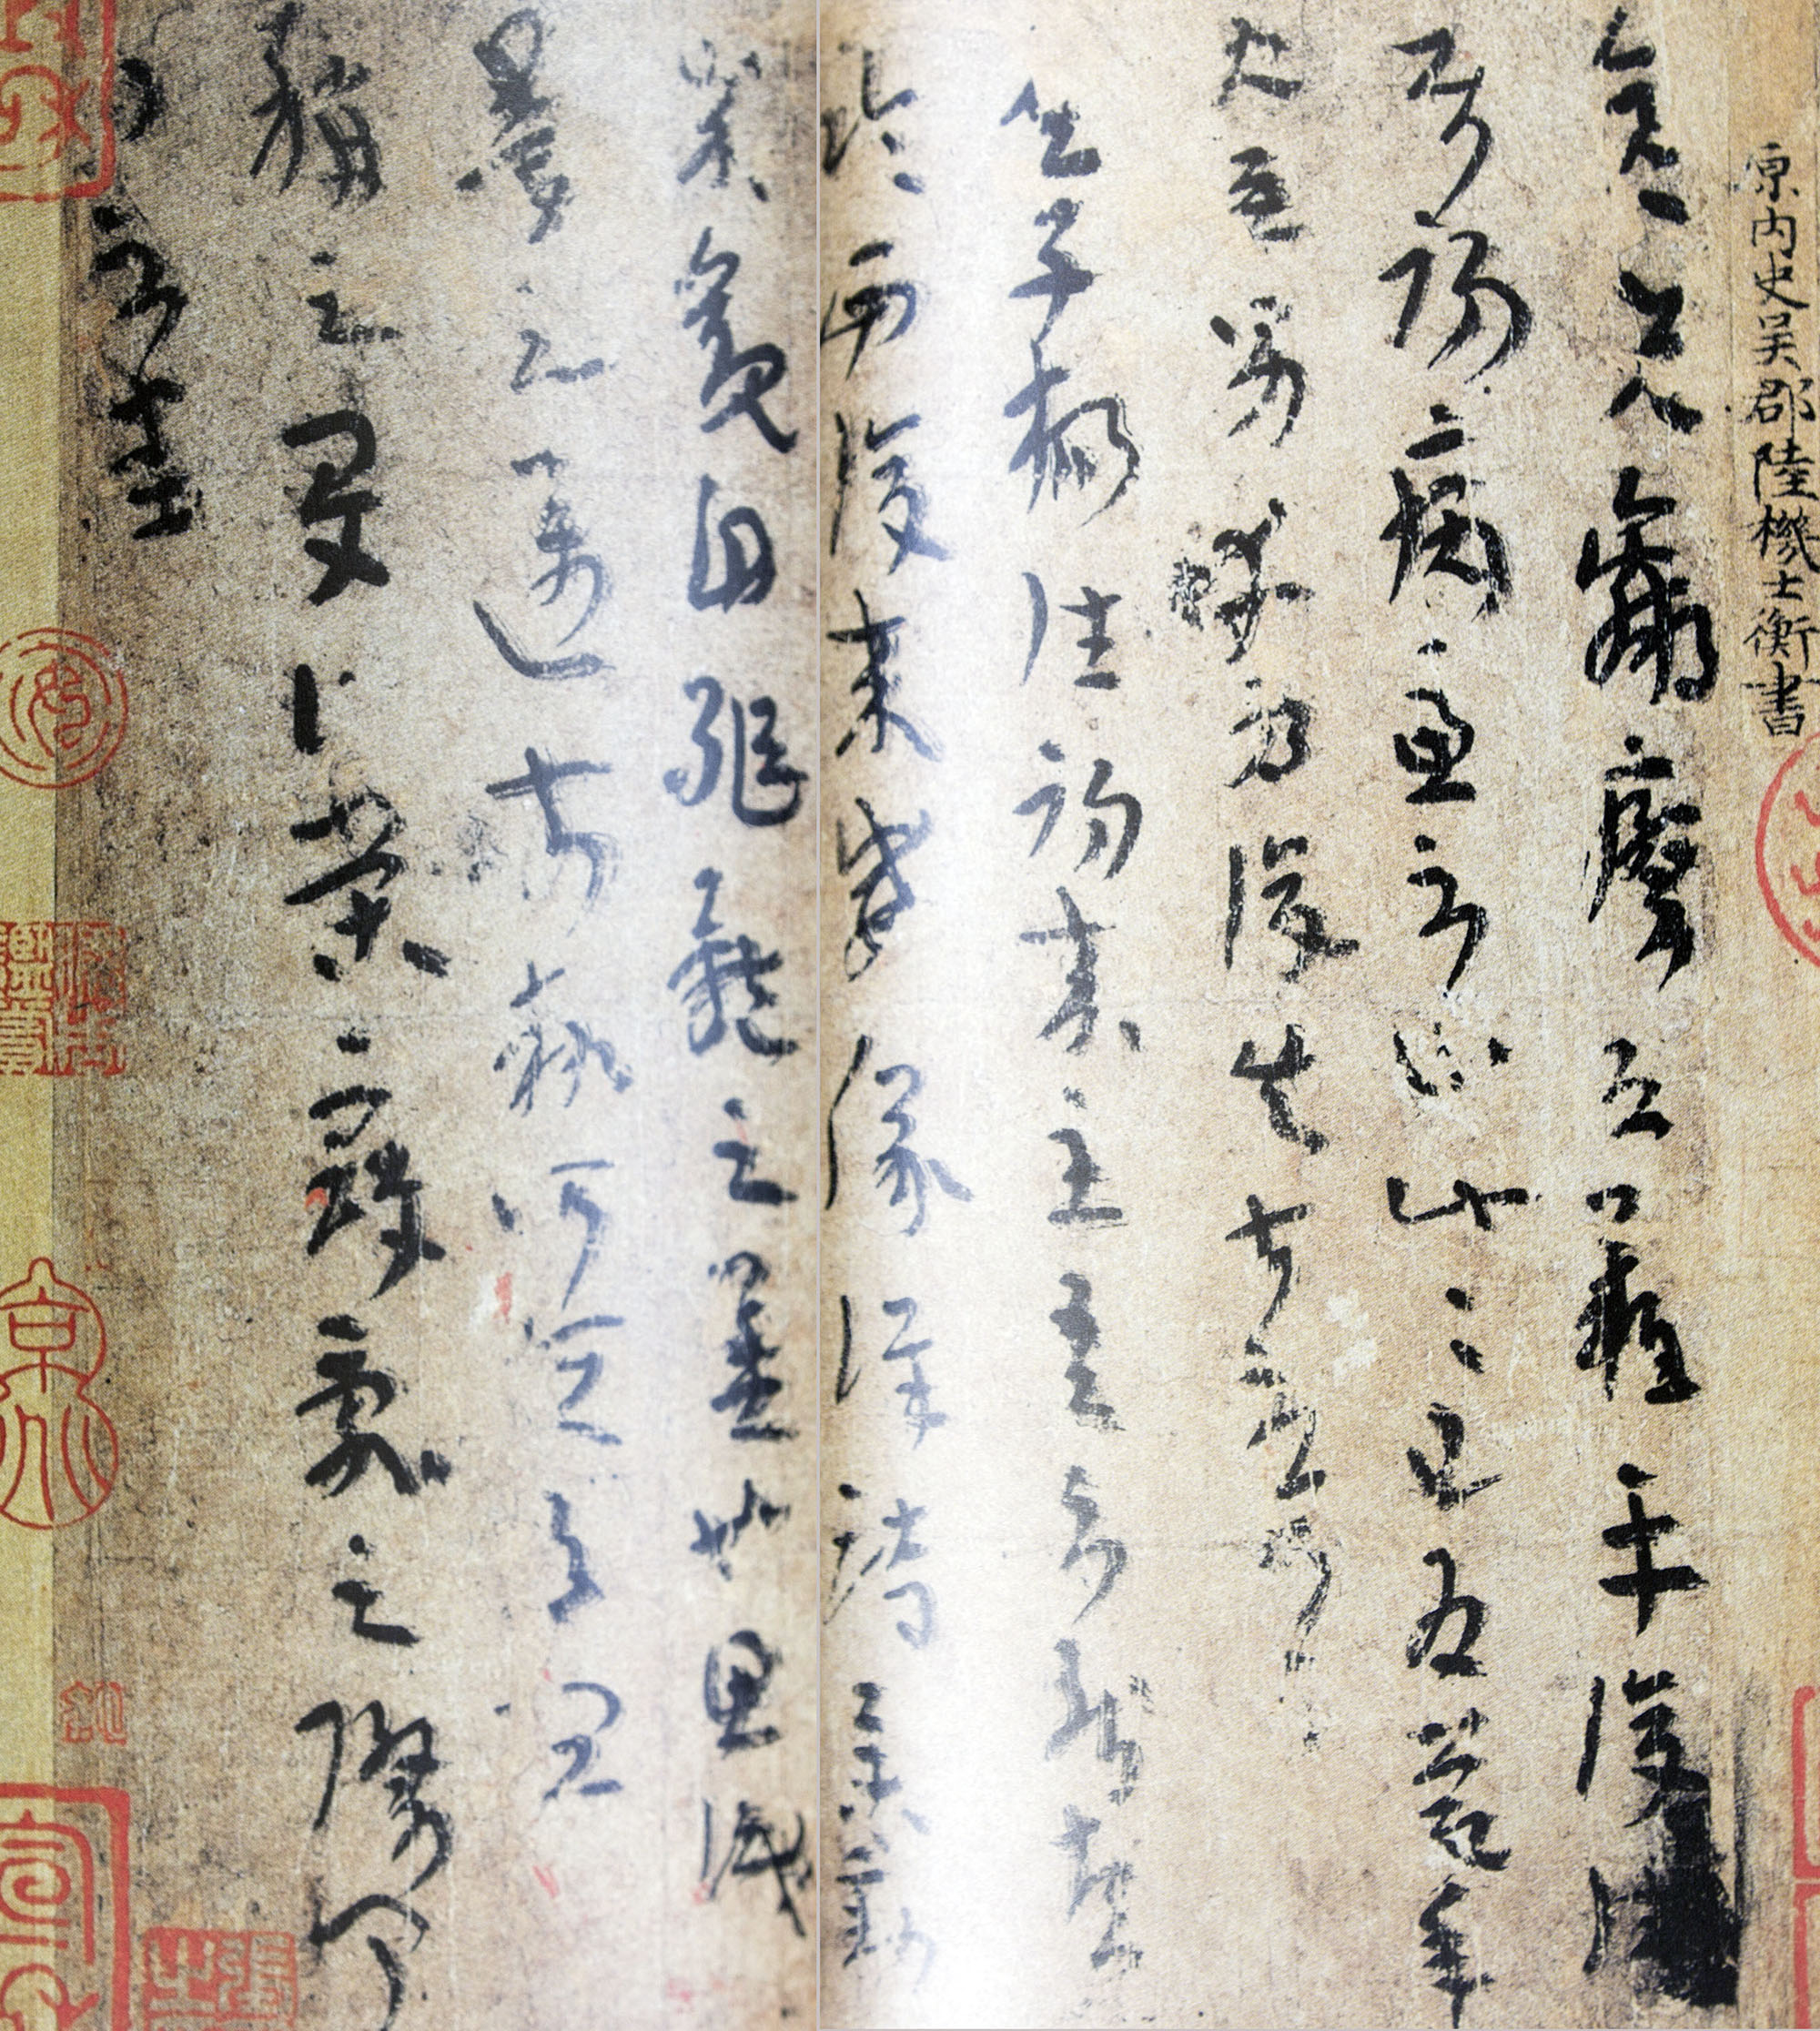 原内史吴郡陸機士衡書
彦先羸瘵恐難平復往
屬初病慮不止此此已為慶承
使唯男幸為復失前憂耳
吳子楊往初來主吾不能盡
臨西復來威儀詳跱舉動
成觀自軀體之美也思識
量之邁前執所恒有宜
稱之夏伯榮寇亂之際聞
問不悉